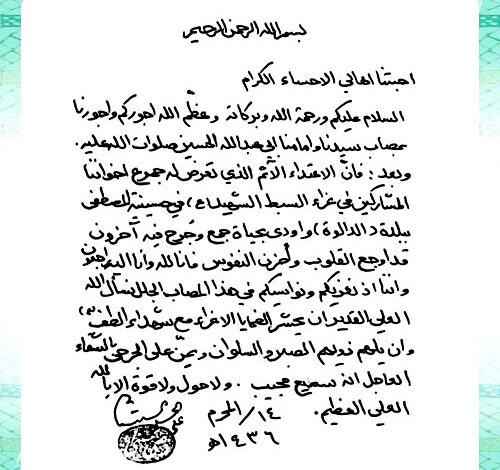 بسم الله الرحمن الرحيم
احبتنا اهالي الاحساء الكرام
السلام عليكم ورحمة الله وبركاته وعظّم الله اجوركم واجورنا
بمصاب سيدنا وامامنا ابي عبدالله الحسين صلوات الله عليه.
وبعد: فانّ الاعتداء الآثم الذي تعرض له جموع اخواننا
المشاركين في عزاء السبط الشهيد(ع) في حسينية المصطفى
ببلدة (الدالوة) واودى بحياة جمع وجُرح فيه آخرون
قد اوجع القلوب وأحزن النفوس فانا لله وانا اليه راجعون
واننا اذ نعزيكم ونواسيكم في هذا المصاب الجلل نسأل الله
العلي القدير ان يحشر الضحايا الاعزاء مع شهداء الطف
وان يلهم ذويهم الصبر والسلوان ويمنّ على الجرحى بالشفاء
العاجل انه سميع مجيب. ولا حول ولا قوة الا بالله
العلي العظيم.
١٤/ محرم
١٤٣٦هـ